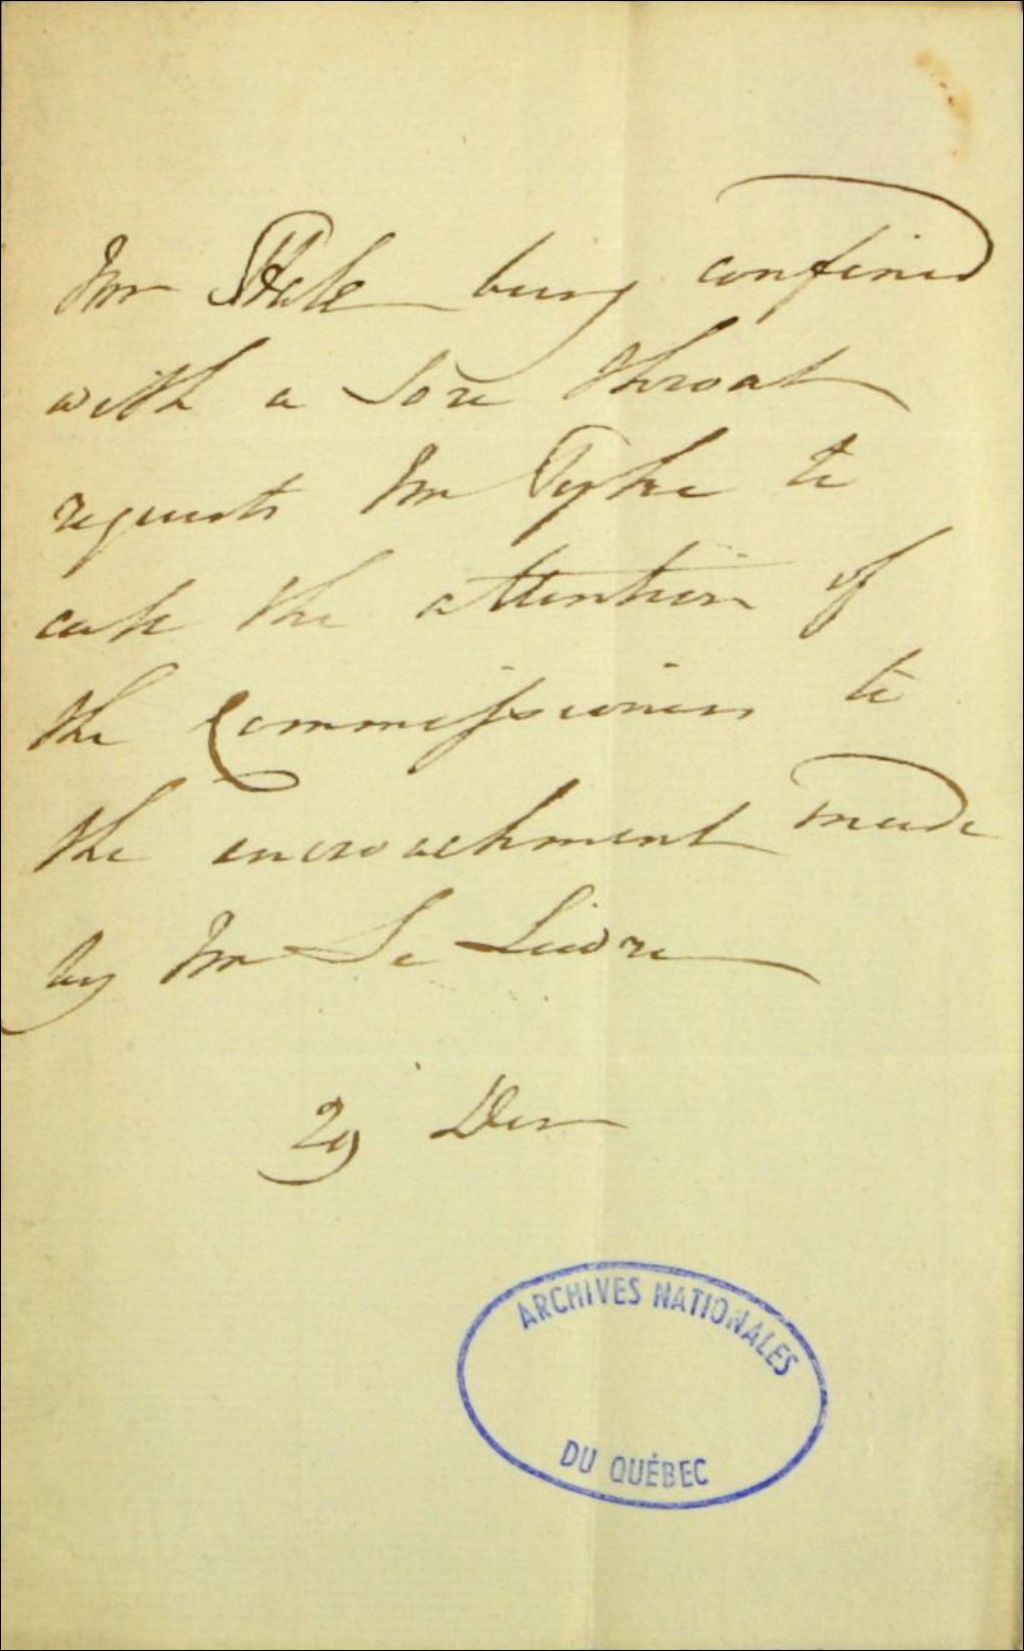 Mr Hale being confined
with a Sore throat
requests Mr Pyke to
call the attention of
the Commissioners to
the encroachment made
by Mr Le Lievre
29 Decr
ARCHIVES NATIONALES
DU QUÉBEC